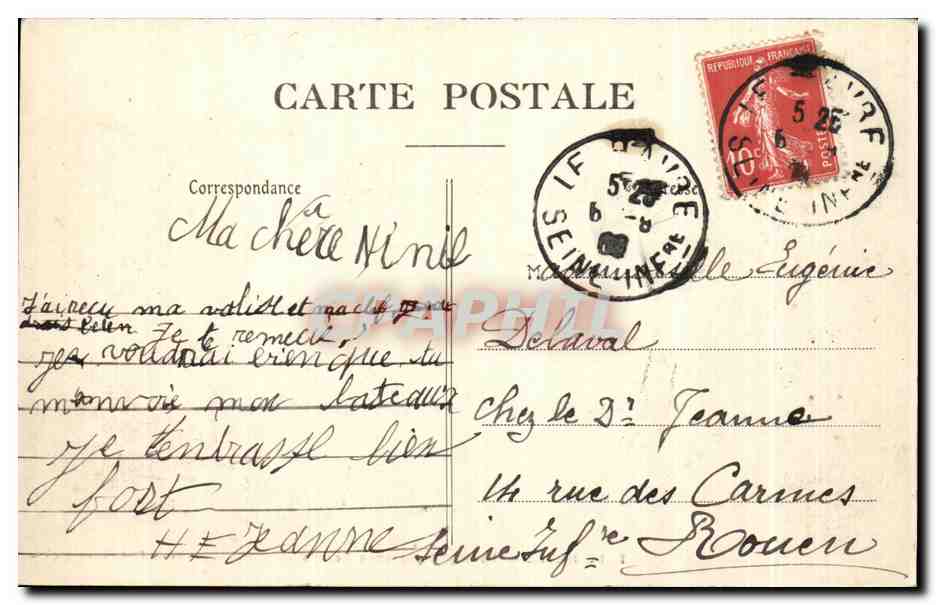 CARTE POSTALE
RÉPUBLIQUE FRANÇAISE
10c POSTES
LE HAVRE
5-25
6 -8
SEINE INFRE
LE HAVRE
5-25
6 -8
SEINE INFRE
Correspondance
Ma chère Ninie
J'ai reçu ma valise et ma clef je
bien Je te remercie
Je voudrai bien que tu
m'envoie mon bateau
Je t'enbrasse bien
fort
HE Jeanne
Mademoiselle Eugénie
Delaval
chez le Dr Jeanne
14 rue des Carmes
Seine Infre Rouen
CPAPHIL